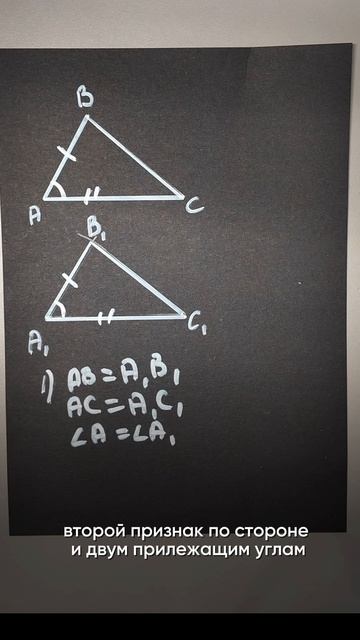 B
A
C
B₁
A₁
C₁
1) AB = A₁B₁
AC = A₁C₁
∠A = ∠A₁
второй признак по стороне
и двум прилежащим углам